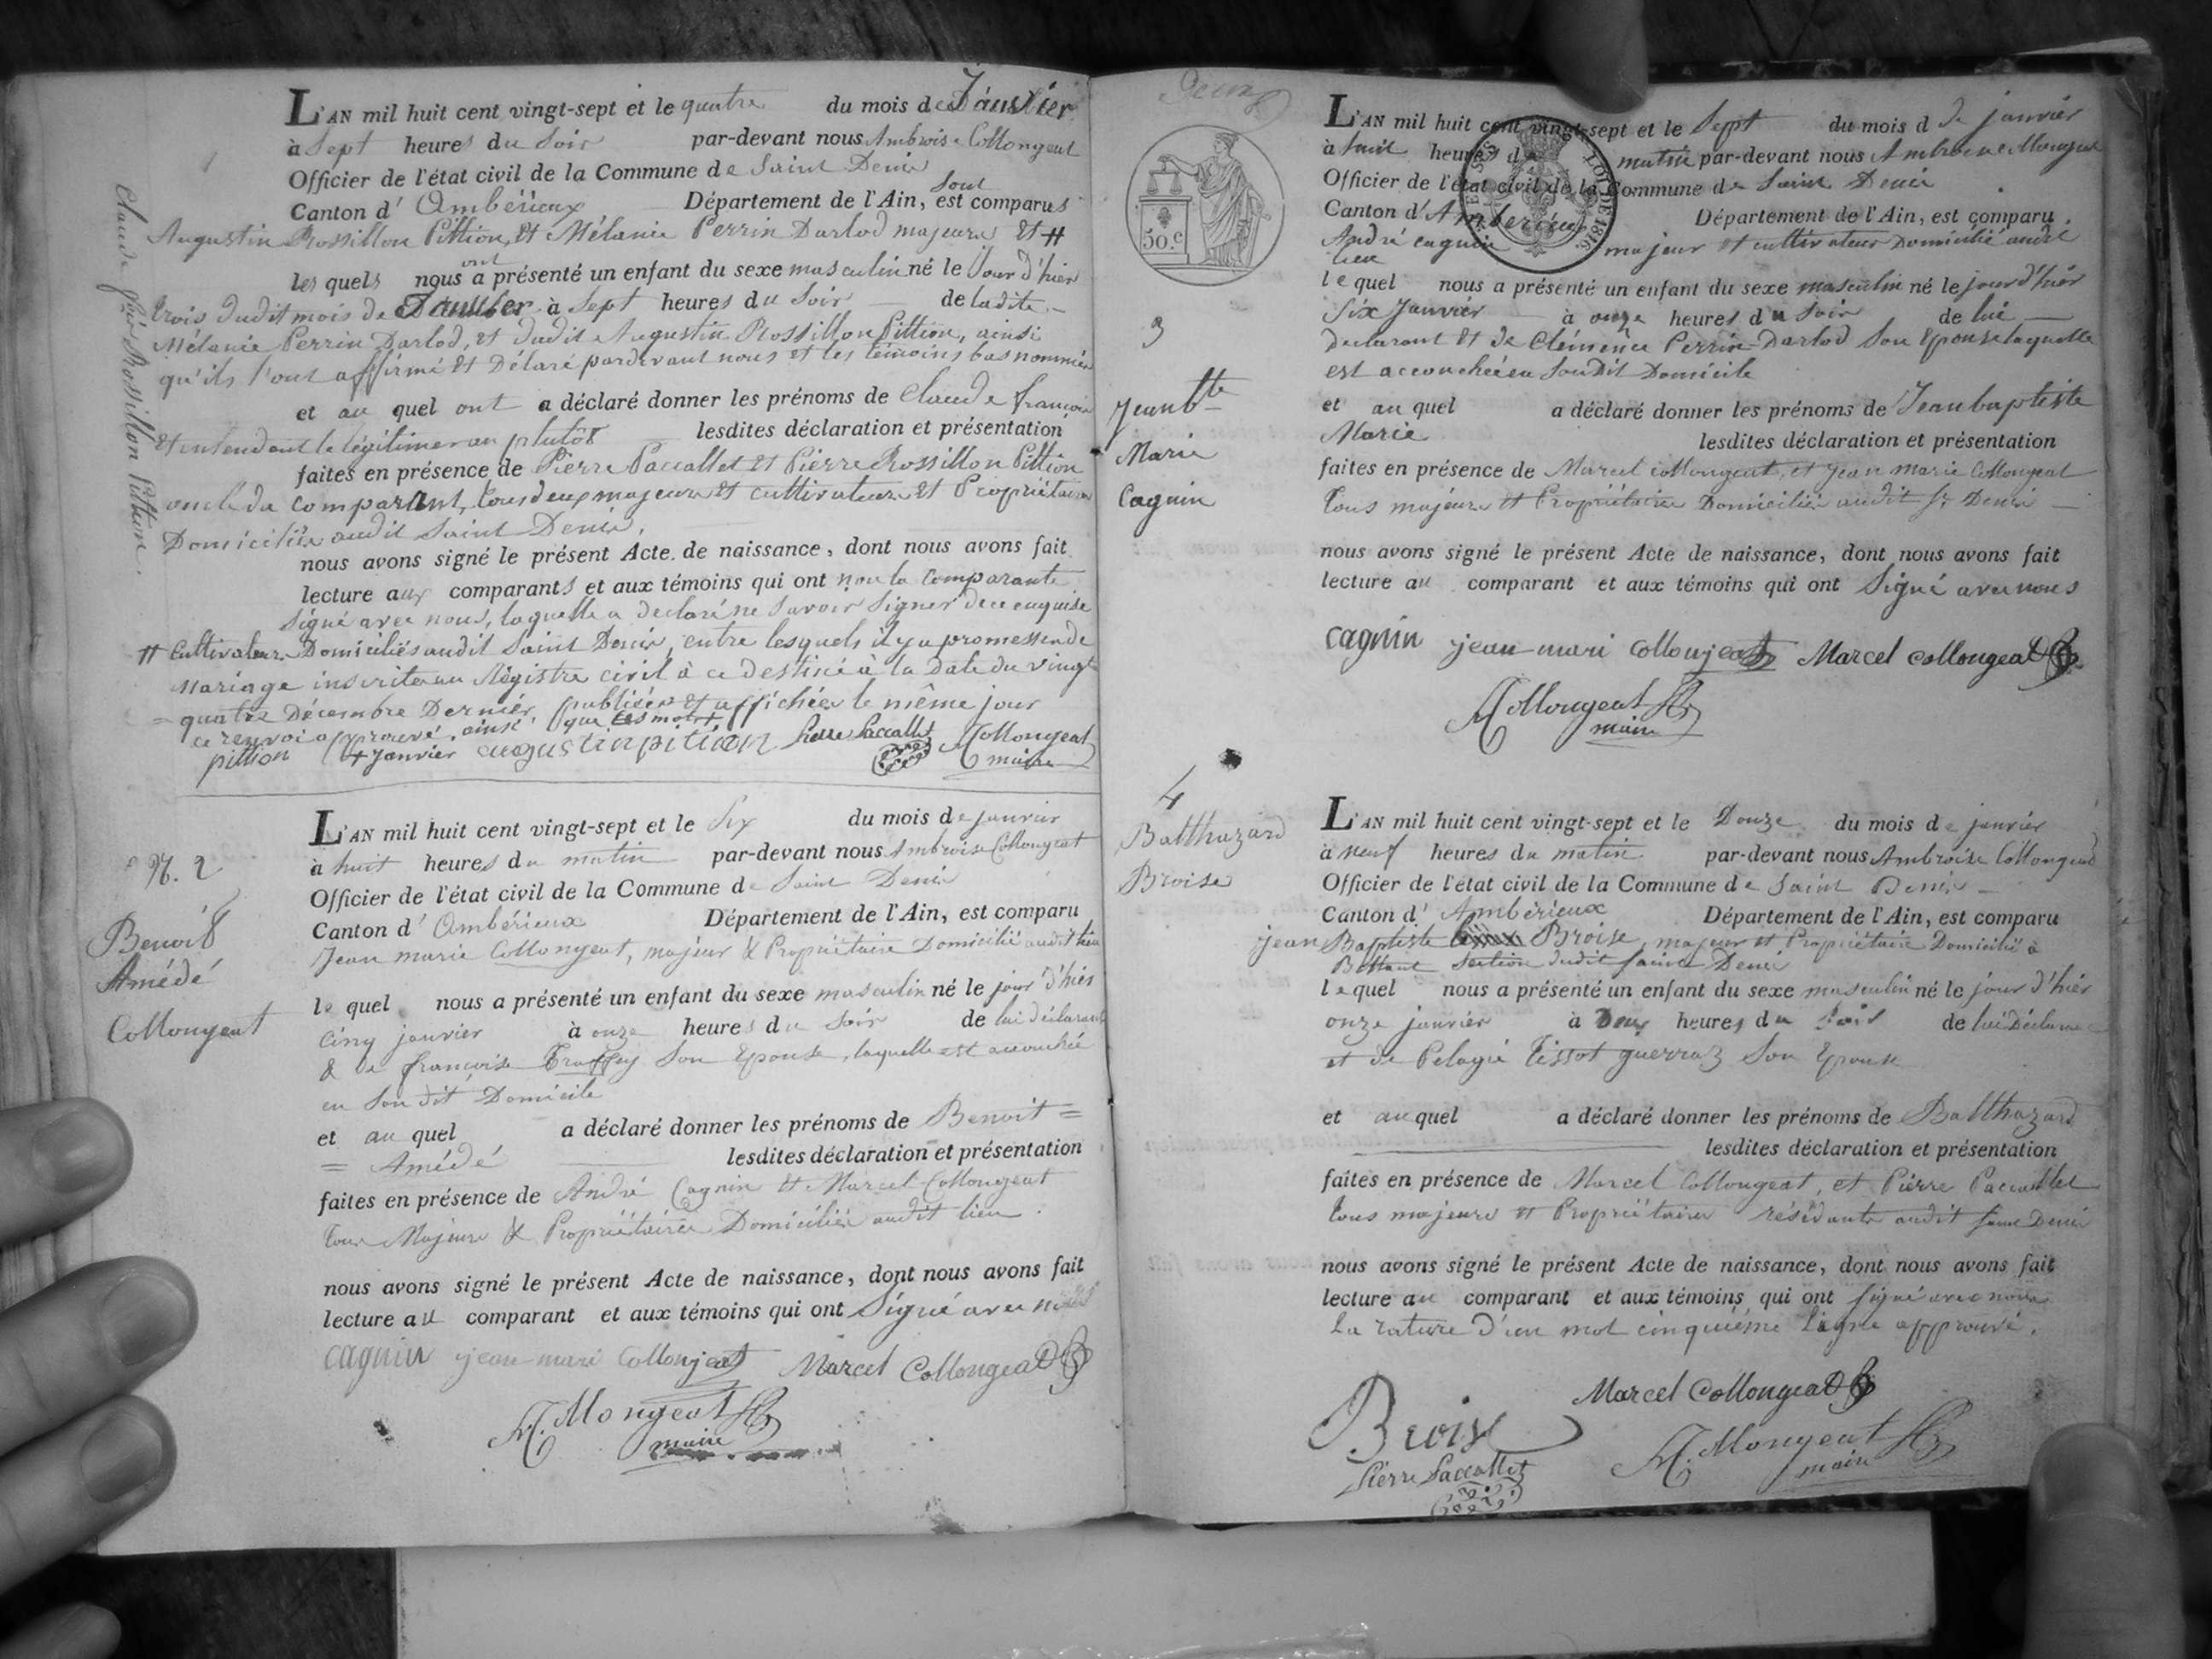 1
Claude françois Rossillon Pittion.
L'AN mil huit cent vingt-sept et le quatre du mois de Janvier
à Sept heures du Soir par-devant nous Ambroise Collongeat
Officier de l'état civil de la Commune de Saint Denis
sont
Canton d' Ambérieux Département de l'Ain, est comparus
Augustin Rossillon Pittion, et Mélanie Perrin Darlod majeurs et #
ont
les quels nous a présenté un enfant du sexe masculin né le Jour d'hier
trois dudit mois de Janvier à Sept heures du Soir de ladite
Mélanie Perrin Darlod, et dudit Augustin Rossillon Pittion, ainsi
qu'ils l'ont affirmé et Délaré pardevant nous et les témoins bas nommés
et au quel ont a déclaré donner les prénoms de Claude françois
et entendent le légitimer au plutôt lesdites déclaration et présentation
faites en présence de Pierre Paccallet et Pierre Rossillon Pittion
oncle du comparant, tous deux majeurs et cultivateurs et Propriétaires
Domiciliés audit Saint Denis.
nous avons signé le présent Acte de naissance, dont nous avons fait
lecture aux comparants et aux témoins qui ont non la Comparante
signé avec nous, laquelle a declaré ne savoir signer de ce enquise
# Cultivateurs Domiciliés audit Saint Denis, entre lesquels il y a promesse de
Mariage inscrite au Régistre civil à ce destiné à la Date du vingt
quatre Décembre Dernier, publiées et affichées le même jour
ce renvoi approuvé, ainsi que les mots
pittion + janvier augustin pition Pierre Paccallet A Collongeat
maire
N. 2
Benoit
Amédé
Collongeat
L'AN mil huit cent vingt-sept et le Six du mois de janvier
à huit heures du matin par-devant nous Ambroise Collongeat
Officier de l'état civil de la Commune de Saint Denis
Canton d' Ambérieux Département de l'Ain, est comparu
Jean marie Collongeat, majeur & Propriétaire Domicilié audit lieu
le quel nous a présenté un enfant du sexe masculin né le jour d'hier
cinq janvier à onze heures du Soir de lui déclarant
& de françoise Truffey Son Epouse, laquelle est accouchée
en Son dit Domicile
et au quel a déclaré donner les prénoms de Benoit =
= Amédé lesdites déclaration et présentation
faites en présence de André Cagnin et Marcel Collongeat
tous Majeurs & Propriétaires Domiciliés audit lieu.
nous avons signé le présent Acte de naissance, dont nous avons fait
lecture au comparant et aux témoins qui ont Signé avec nous
cagnin jean mari Collonjeat Marcel Collongeat
A. Collongeat
maire
50.c
3
Jean bte
Marie
Cagnin
L'AN mil huit cent vingt-sept et le Sept du mois d de janvier
à huit heures du matin par-devant nous Ambroise Collongeat
Officier de l'état civil de la Commune de Saint Denis
Canton d'Ambérieux Département de l'Ain, est comparu
André cagnin majeur et cultivateur Domicilié audit
lieu
le quel nous a présenté un enfant du sexe masculin né le jour d'hier
Six Janvier à onze heures du Soir de lui
declarant et de Clémence Perrin-Darlod Son Epouse laquelle
est accouchée en Sondit Domicile
et au quel a déclaré donner les prénoms de Jean baptiste
Marie lesdites déclaration et présentation
faites en présence de Marcel Collongeat, et Jean marie Collongeat
tous majeurs et Propriétaires Domiciliés audit St Denis
nous avons signé le présent Acte de naissance, dont nous avons fait
lecture au comparant et aux témoins qui ont Signé avec nous
cagnin jean-mari Collonjeat Marcel Collongeat
A Collongeat
maire
4
Balthazard
Broise
L'AN mil huit cent vingt-sept et le Douze du mois de janvier
à neuf heures du matin par-devant nous Ambroise Collongeat
Officier de l'état civil de la Commune de Saint Denis
Canton d' Ambérieux Département de l'Ain, est comparu
jean Baptiste Broise, majeur et Propriétaire Domicilié à
Bettant Section dudit Saint Denis
le quel nous a présenté un enfant du sexe masculin né le jour d'hier
onze janvier à Deux heures du Soir de lui Déclarant
et de Pelagie Tissot guerraz Son Epouse
et au quel a déclaré donner les prénoms de Balthazard
lesdites déclaration et présentation
faites en présence de Marcel Collongeat, et Pierre Paccallet
tous majeurs et Propriétaires résidants audit Saint Denis
nous avons signé le présent Acte de naissance, dont nous avons fait
lecture au comparant et aux témoins qui ont signé avec nous
La rature d'un mot cinquième Ligne approuvé.
Broise Marcel Collongeat
Pierre Paccallet A. Collongeat
maire